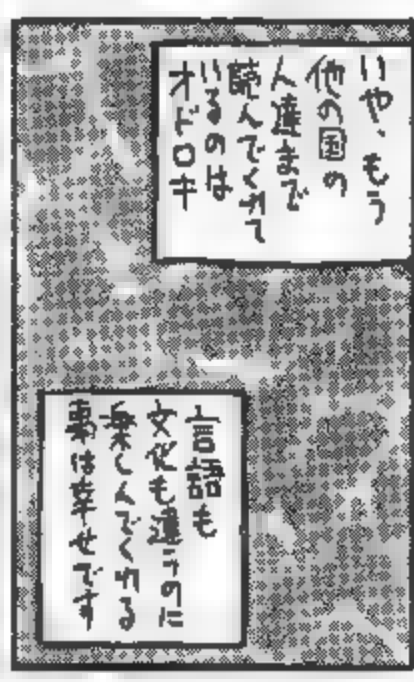 いや、もう
他の国の
人達まで
読んでくれて
いるのは
オドロキ
言語も
文化も違うのに
楽しんでくれる
事は幸せです